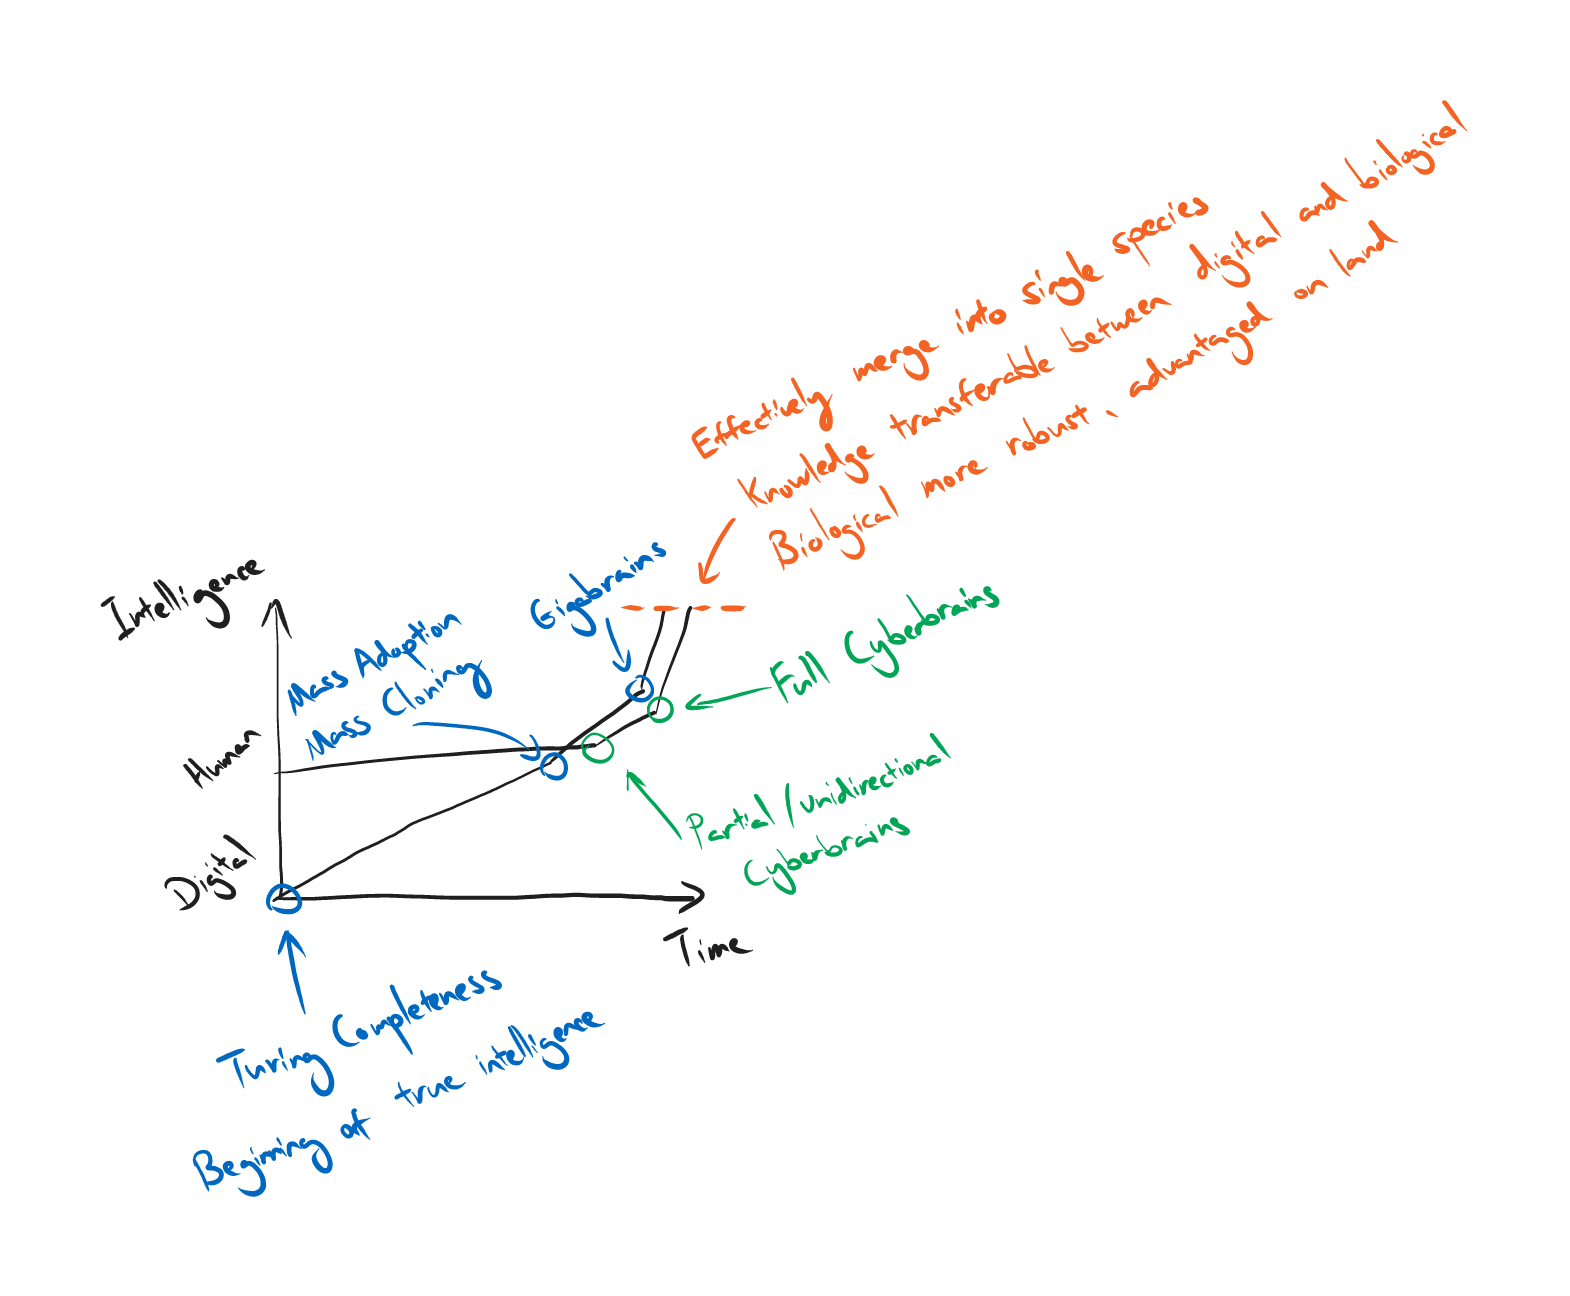 Effectively merge into single species
Knowledge transferable between digital and biological
Biological more robust, advantaged on land
Gigabrains
Intelligence
Mass Adoption
Mass Cloning
Full Cyberbrains
Human
Partial/unidirectional
Cyberbrains
Digital
Time
Turing Completeness
Beginning of true intelligence